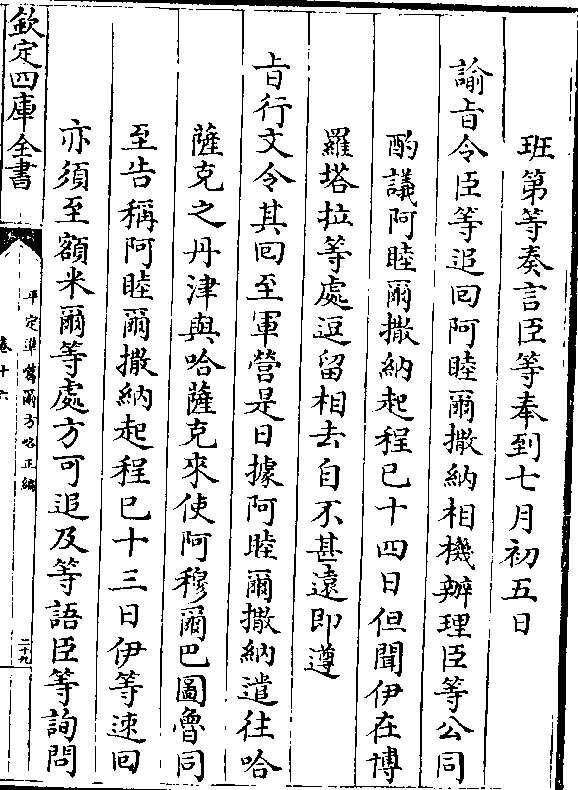 班第等奏言臣等奉到七月初五日
諭㫖令臣等追回阿睦爾撒納相機辦理臣等公同
酌議阿睦爾撒納起程已十四日但聞伊在博
羅塔拉等處逗留相去自不甚遠即遵
㫖行文令其回至軍營是日據阿睦爾撒納遣往哈
薩克之丹津與哈薩克來使阿穆爾巴圖魯同
至告稱阿睦爾撒納起程已十三日伊等速回
亦須至額米爾等處方可追及等語臣等詢問
欽定四庫全書
平定準噶爾方略正編
卷十六
二十九